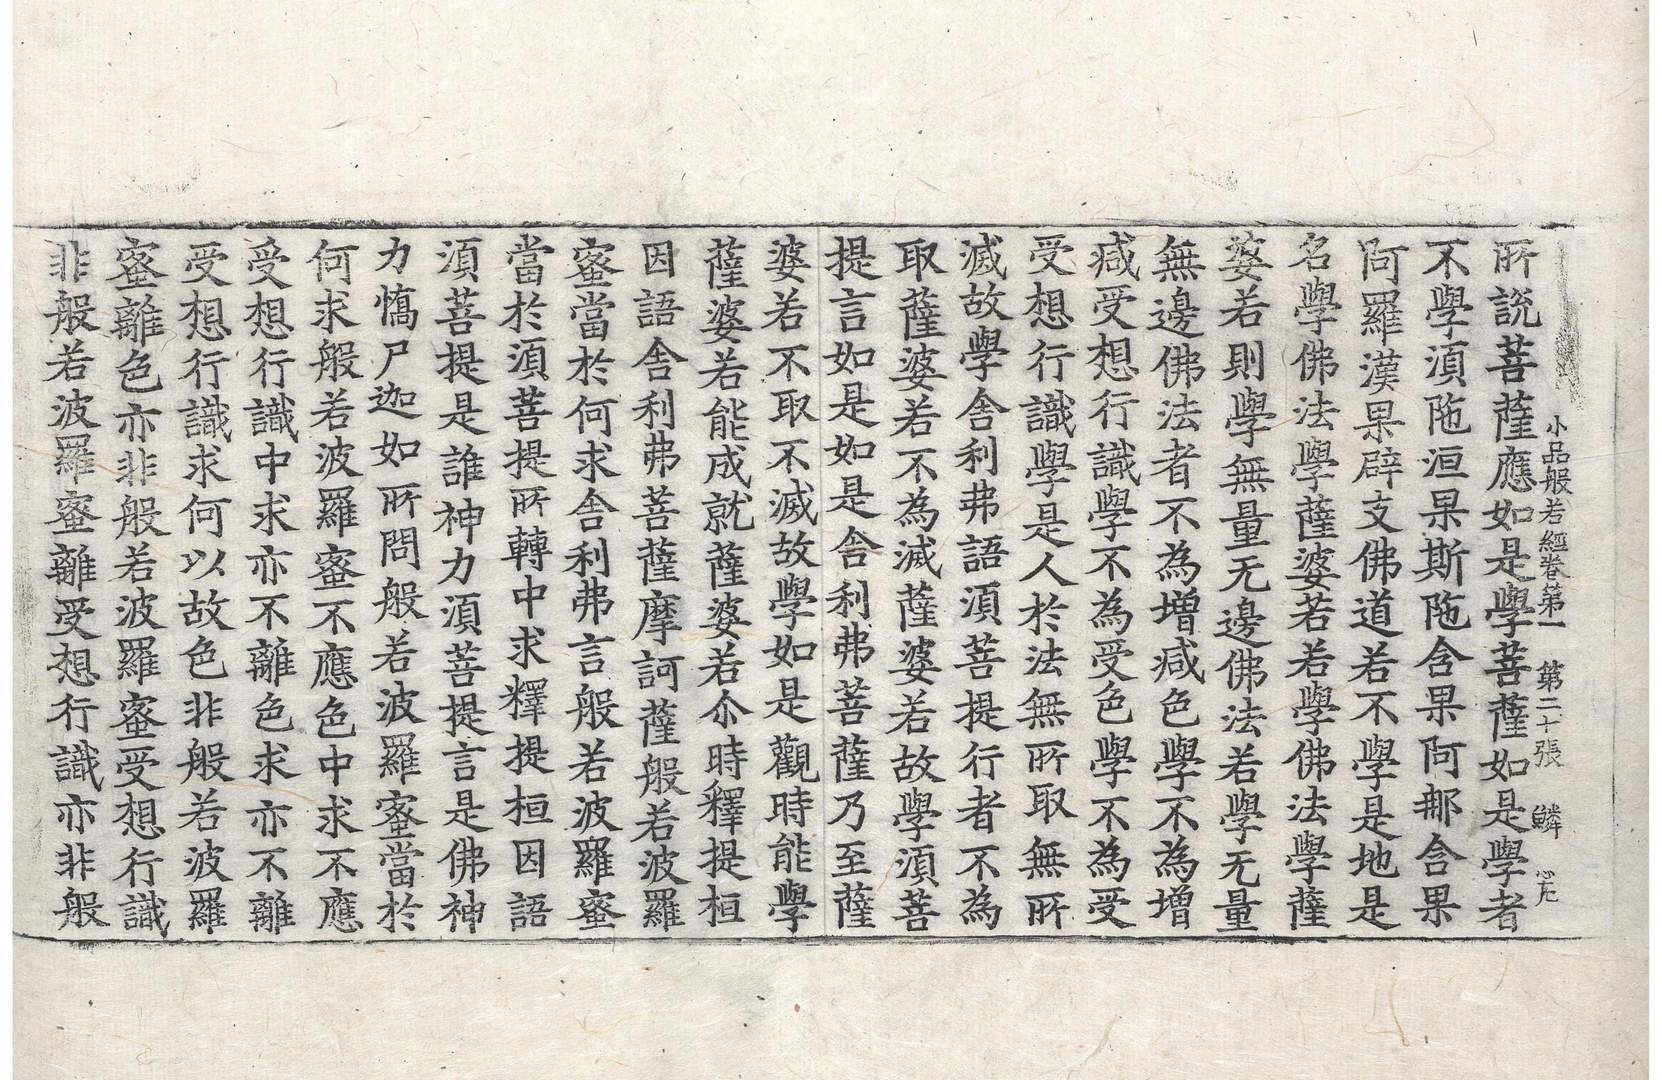 小品般若經卷第一　第二十張　鱗
所說菩薩應如是學菩薩如是學者
不學湏陁洹果斯陁含果阿那含果
阿羅漢果辟支佛道若不學是地是
名學佛法學薩婆若若學佛法學薩
婆若則學無量无邊佛法若學无量
無邊佛法者不為增減色學不為增
減受想行識學不為受色學不為受
受想行識學是人於法無所取無所
滅故學舍利弗語湏菩提行者不為
取薩婆若不為滅薩婆若故學湏菩
提言如是如是舍利弗菩薩乃至薩
婆若不取不滅故學如是觀時能學
薩婆若能成就薩婆若尒時釋提桓
因語舍利弗菩薩摩訶薩般若波羅
蜜當於何求舍利弗言般若波羅蜜
當於湏菩提所轉中求釋提桓因語
湏菩提是誰神力湏菩提言是佛神
力憍尸迦如所問般若波羅蜜當於
何求般若波羅蜜不應色中求不應
受想行識中求亦不離色求亦不離
受想行識求何以故色非般若波羅
蜜離色亦非般若波羅蜜受想行識
非般若波羅蜜離受想行識亦非般